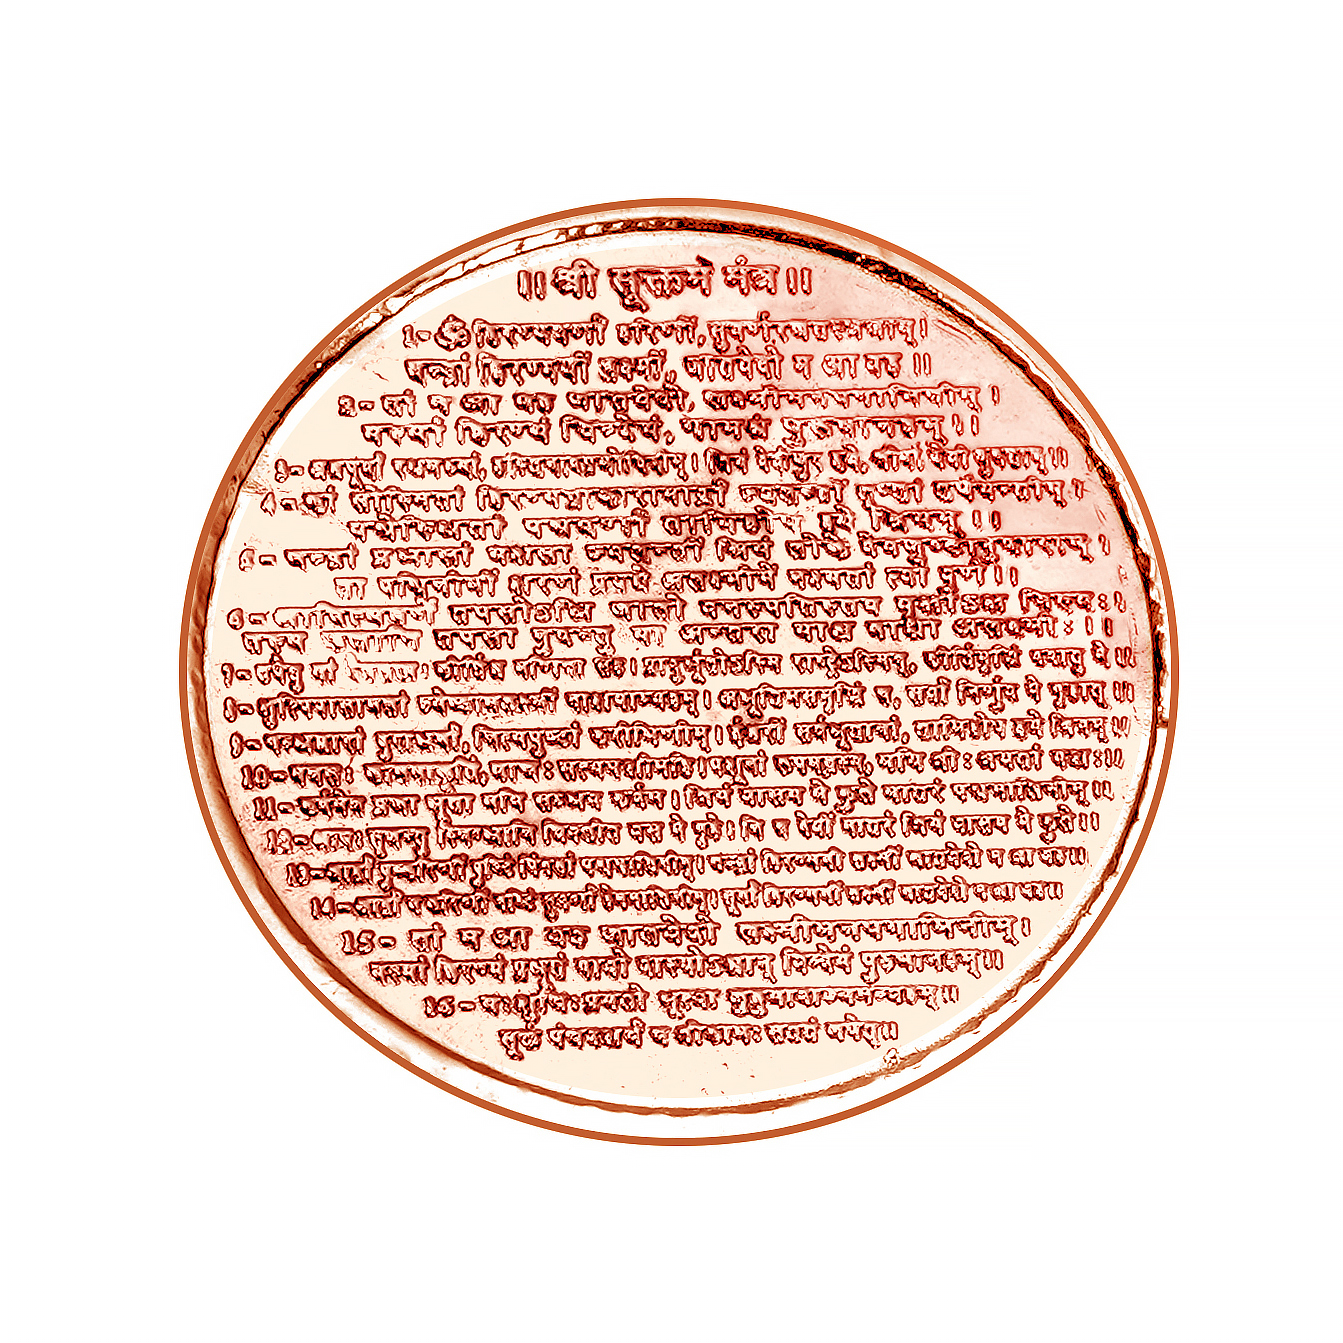 ।। श्री सूक्तम मंत्र ।।
1- ॐ हिरण्यवर्णां हरिणीं, सुवर्णरजतस्त्रजाम् ।
चन्द्रां हिरण्मयीं लक्ष्मीं, जातवेदो म आ वह ।।
2- तां म आ वह जातवेदो, लक्ष्मीमनपगामिनीम् ।
यस्यां हिरण्यं विन्देयं, गामश्वं पुरुषानहम् ।।
3- अश्वपूर्वां रथमध्यां, हस्तिनादप्रमोदिनीम् । श्रियं देवीमुप ह्वये, श्रीर्मा देवी जुषताम् ।।
4- कां सोस्मितां हिरण्यप्राकारामार्द्रां ज्वलन्तीं तृप्तां तर्पयन्तीम् ।
पद्मेस्थितां पद्मवर्णां तामिहोप ह्वये श्रियम् ।।
5- चन्द्रां प्रभासां यशसा ज्वलन्तीं श्रियं लोके देवजुष्टामुदाराम् ।
तां पद्मिनीमीं शरणं प्रपद्ये अलक्ष्मीर्मे नश्यतां त्वां वृणे ।।
6- आदित्यवर्णे तपसोऽधि जातो वनस्पतिस्तव वृक्षोऽथ बिल्वः ।
तस्य फलानि तपसा नुदन्तु या अन्तरा याश्च बाह्या अलक्ष्मीः ।।
7- उपैतु मां कीर्तिश्च मणिना सह । प्रादुर्भूतोऽस्मि राष्ट्रेऽस्मिन्, कीर्तिमृद्धिं ददातु मे ।।
8- क्षुत्पिपासामलां ज्येष्ठामलक्ष्मीं नाशयाम्यहम् । अभूतिमसमृद्धिं च, सर्वां निर्णुद मे गृहात् ।।
9- गन्धद्वारां दुराधर्षां, नित्यपुष्टां करीषिणीम् । ईश्वरीं सर्वभूतानां, तामिहोप ह्वये श्रियम् ।।
10- मनसः वाचः सत्यमशीमहि । पशूनां रूपमन्नस्य, मयि श्रीः श्रयतां यशः ।।
11- कर्दमेन प्रजा भूता मयि सम्भव कर्दम । श्रियं वासय मे कुले मातरं पद्ममालिनीम् ।।
12- आपः सृजन्तु स्निग्धानि चिक्लीत वस मे गृहे । नि च देवीं मातरं श्रियं वासय मे कुले ।।
13- चन्द्रां हिरण्मयीं लक्ष्मीं जातवेदो म आ वह ।।
14- सूर्यां हिरण्मयीं लक्ष्मीं जातवेदो म आ वह ।।
15- तां म आ वह जातवेदो लक्ष्मीमनपगामिनीम् ।
यस्यां हिरण्यं प्रभूतं गावो दास्योऽश्वान् विन्देयं पुरुषानहम् ।।
16- यः शुचिः प्रयतो भूत्वा जुहुयादाज्यमन्वहम् ।।
सूक्तं पंचदशर्चं च श्रीकामः सततं जपेत् ।।